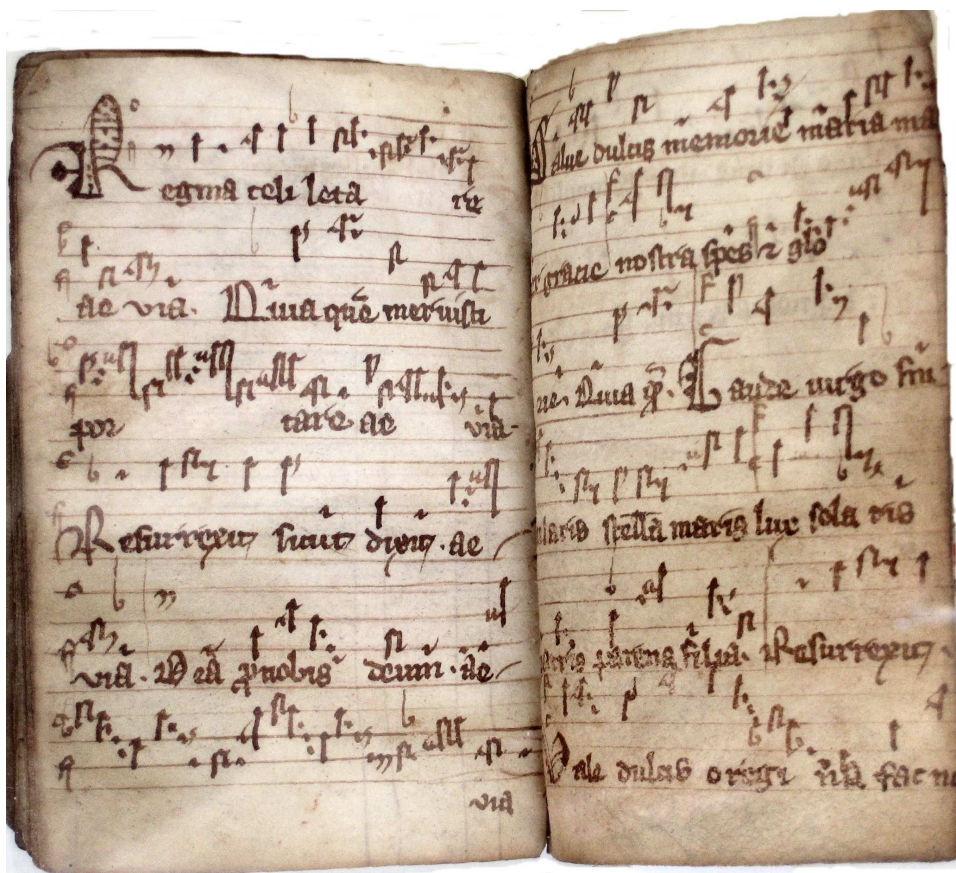 Regina celi leta re
ae via. Quia quē meruisti
por tare ae via
Resurrexit sicut dixit. ae
via. Ora ꝓ nobis deum. ae
via
Salue dulcis memorie maria ma
gracie nostra spes ⁊ glo
rie. Quia ꝙ. Gaude uirgo
laris stella maris lux sola ris
filia. Resurrexit
Vale dulcis o regi fac no